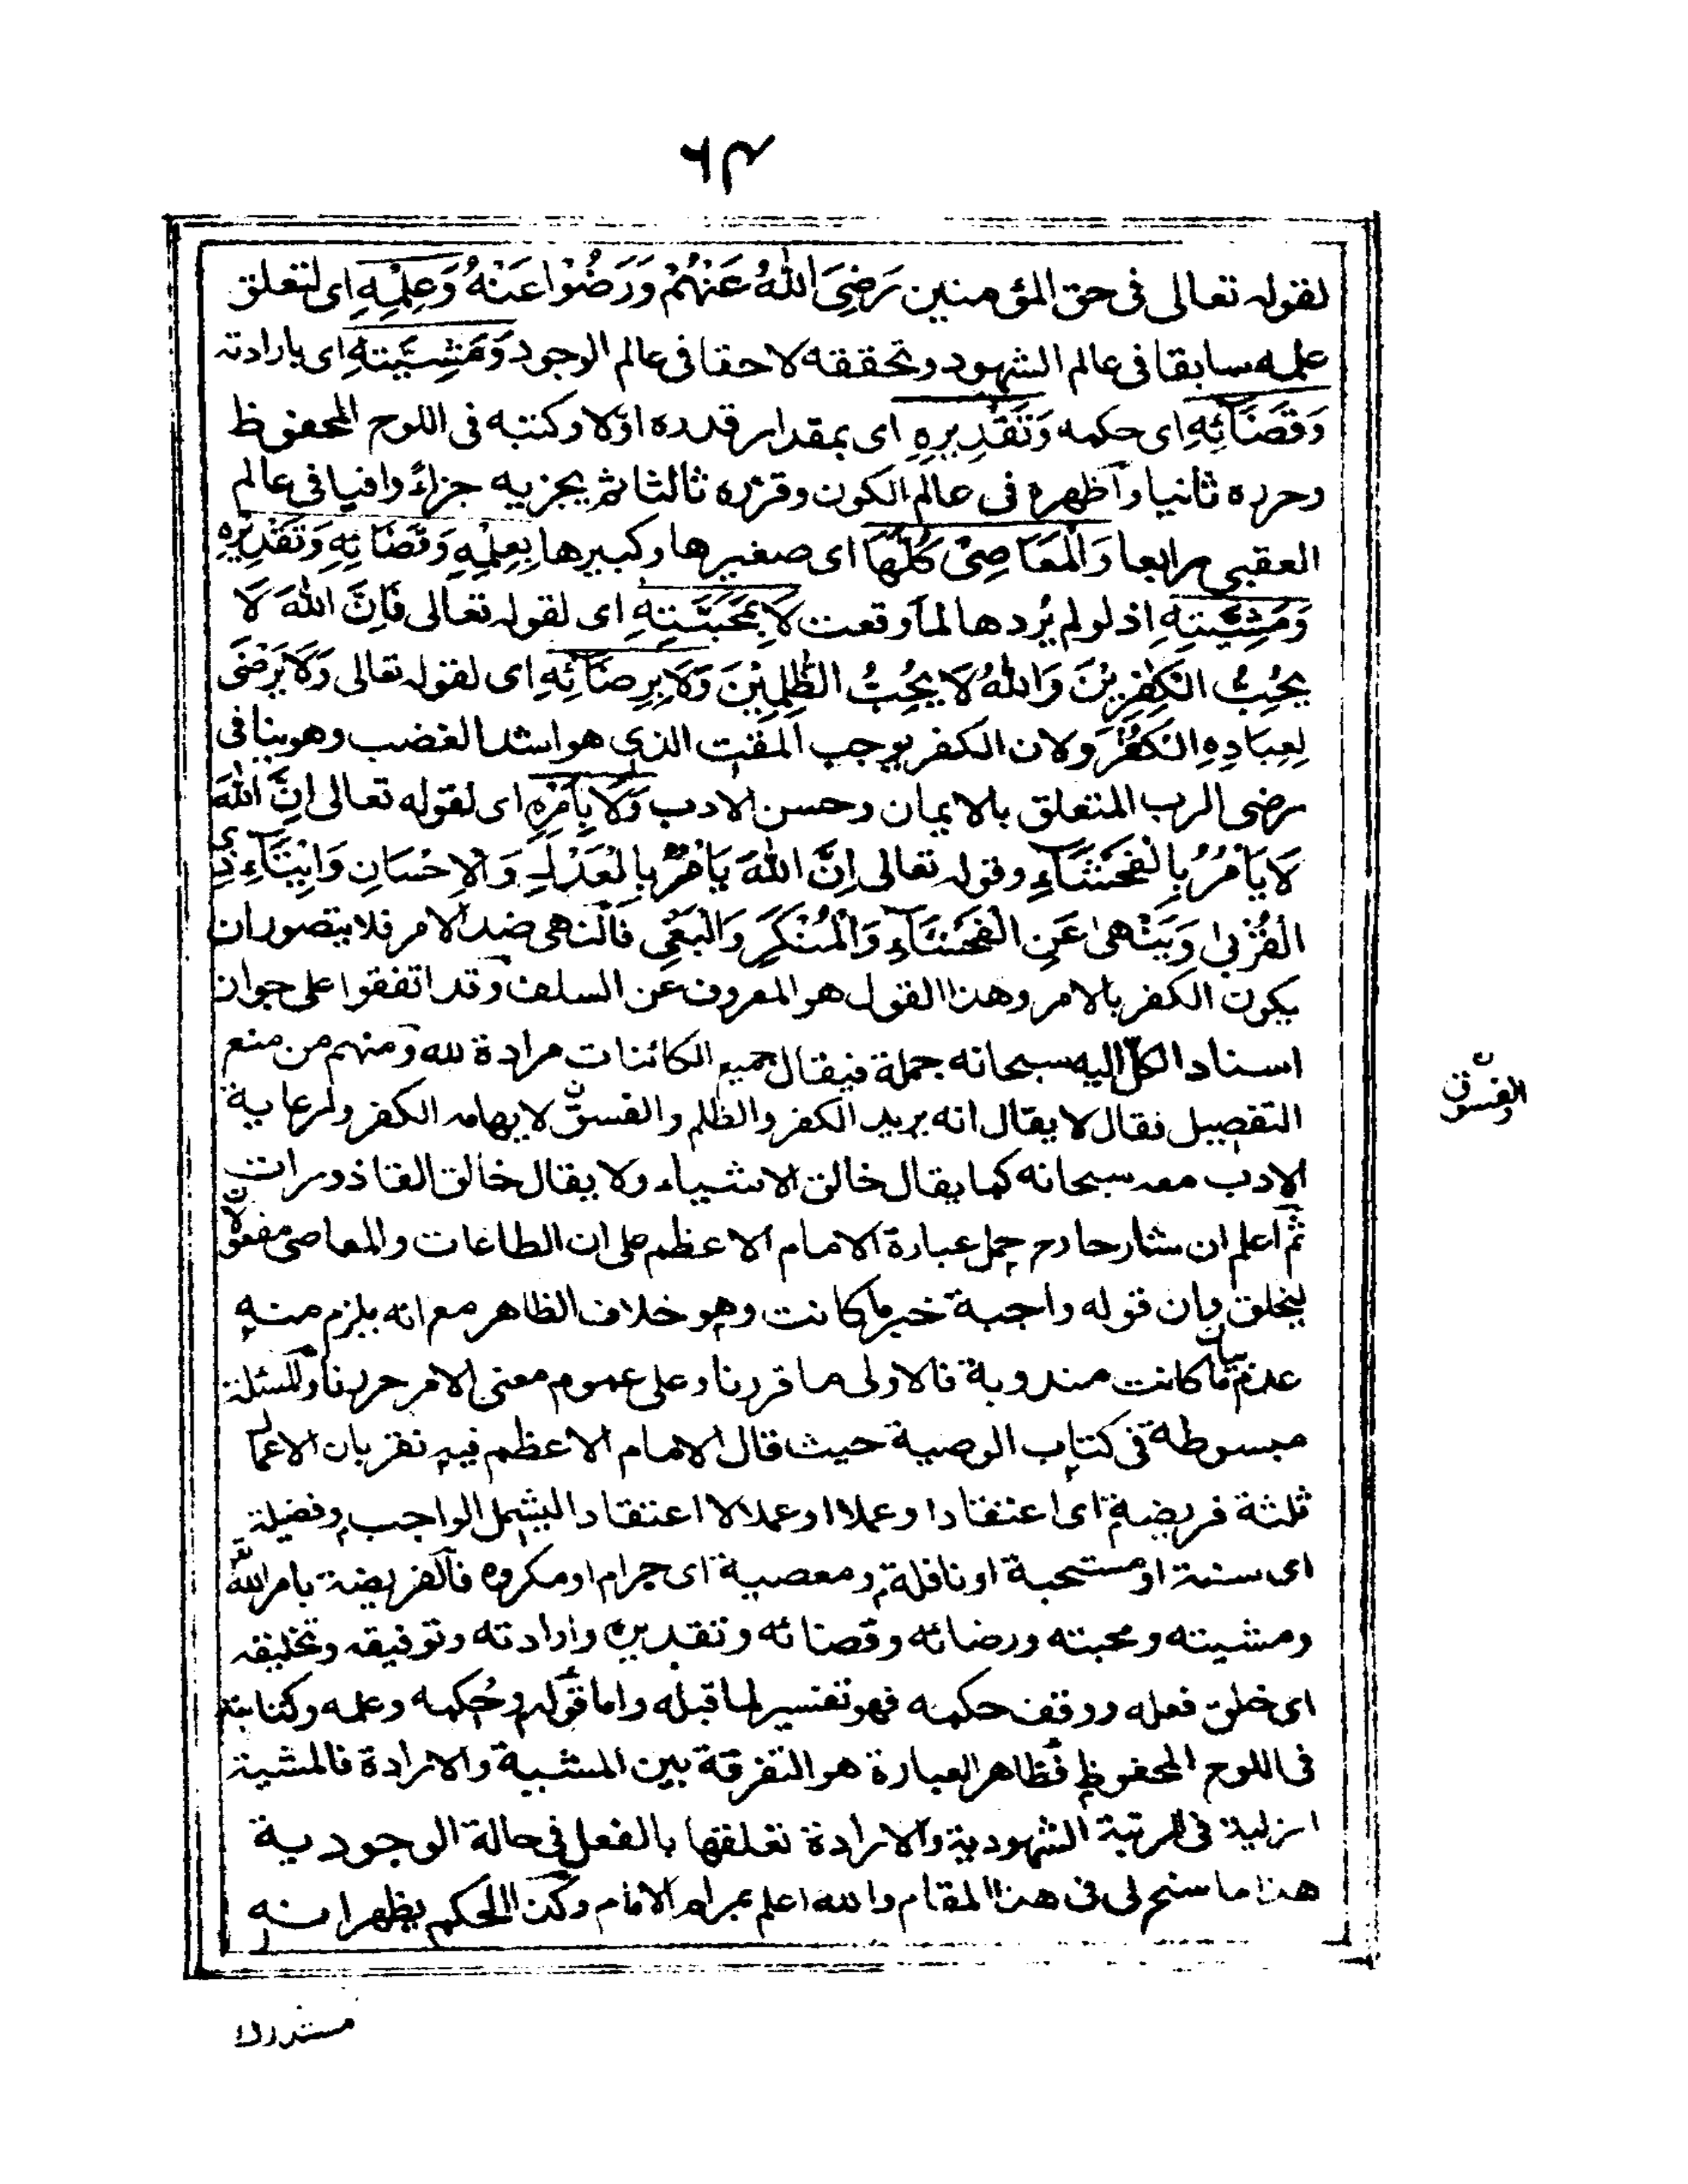 ٦٣
لقوله تعالى فى حق المؤمنين رَضِيَ اللّٰهُ عَنْهُمْ وَرَضُوْا عَنْهُ وَعِلْمِهِ اى لتعلق
علمه سابقا فى عالم الشهود وتحققه لاحقا فى عالم الوجود وَمَشِيَّتِهِ اى بارادته
وَقَضَائِهِ اى حكمه وَتَقْدِيرِهِ اى بمقدار قدره اولا وكتبه فى اللوح المحفوظ
وحرره ثانيا واظهره فى عالم الكون وقرره ثالثا ثم يجزيه جزاءً وافيا فى عالم
العقبى رابعا وَالْمَعَاصِىْ كُلُّهَا اى صغيرها وكبيرها بِعِلْمِهِ وَقَضَائِهِ وَتَقْدِيْرِهِ
وَمَشِيَّتِهِ اذ لو لم يُردها لما وقعت لَا بِمَحَبَّتِهِ اى لقوله تعالى فَاِنَّ اللّٰهَ لَا
يُحِبُّ الْكٰفِرِيْنَ وَاللّٰهُ لَا يُحِبُّ الظّٰلِمِيْنَ وَلَا بِرِضَائِهِ اى لقوله تعالى وَلَا يَرْضٰى
لِعِبَادِهِ الْكُفْرَ ولان الكفر يوجب المقت الذى هو اشد الغضب وهو ينافى
رضى الرب المتعلق بالايمان وحسن الادب وَلَا بِاَمْرِهِ اى لقوله تعالى اِنَّ اللّٰهَ
لَا يَأْمُرُ بِالْفَحْشَآءِ وقوله تعالى اِنَّ اللّٰهَ يَاْمُرُ بِالْعَدْلِ وَالْاِحْسَانِ وَاِيْتَآءِ ذِى
الْقُرْبٰى وَيَنْهٰى عَنِ الْفَحْشَآءِ وَالْمُنْكَرِ وَالْبَغْىِ فالنهى ضد الامر فلا يتصور ان
يكون الكفر بالامر وهذا القول هو المعروف عن السلف وقد اتفقوا على جواز
اسناد الكل اليه سبحانه جملة فيقال جميع الكائنات مرادة لله ومنهم من منع
التفصيل فقال لا يقال انه يريد الكفر والظلم والفسق لايهامه الكفر ولرعاية
والفسوق ن
الادب معه سبحانه كما يقال خالق الاشياء ولا يقال خالق القاذورات
ثم اعلم ان شارحا رح حمل عبارة الامام الاعظم على ان الطاعات والمعاصى مفعول
بان قوله واجبة خبر ما كانت وهو خلاف الظاهر مع انه يلزم منه
كانت مندوبة فالاولى ما قررنا وعلى عموم معنى الامر حررنا والمسئلة
مبسوطة فى كتاب الوصية حيث قال الامام الاعظم فيه نقر بان الاعمال
ثلثة فريضة اى اعتقادا وعملا او عملا لا اعتقادا ليشمل الواجب وفضيلة
اى سنة او مستحبة او نافلة ومعصية اى حرام او مكروه فالفريضة بامر الله
ومشيته ومحبته ورضائه وقضائه وتقديره وارادته وتوفيقه وتخليقه
اى خلق فعله ووقف حكمه فهو تفسير لما قبله واما قوله وحُكمه وعلمه وكتابته
فى اللوح المحفوظ فظاهر العبارة هو التفرقة بين المشية والارادة فالمشية
ازلية فى المرتبة الشهودية والارادة تعلقها بالفعل فى حالة الوجودية
هذا ما سنح لى فى هذا المقام والله اعلم بمرام الامام وكذا الحكم يظهر انه
مستدرك